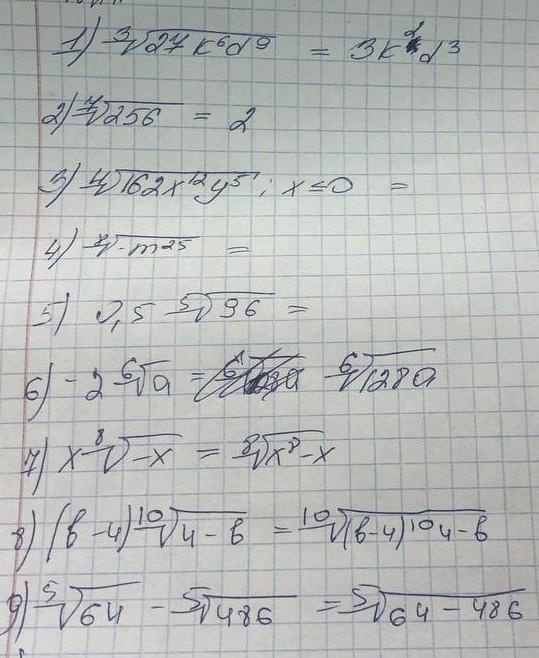 1) ∛27k⁶d⁹ = 3k²d³
2) ⁷√256 = 2
3) ⁴√162x¹²y⁵; x≤0 =
4) ⁷√-m²⁵ =
5) 0,5 ⁵√96 =
6) -2 ⁶√a = ⁶√128a
7) x ⁸√-x = ⁸√x⁸-x
8) (b-4) ¹⁰√4-b = ¹⁰√(b-4)¹⁰4-b
9) ⁵√64 - ⁵√486 = ⁵√64-486